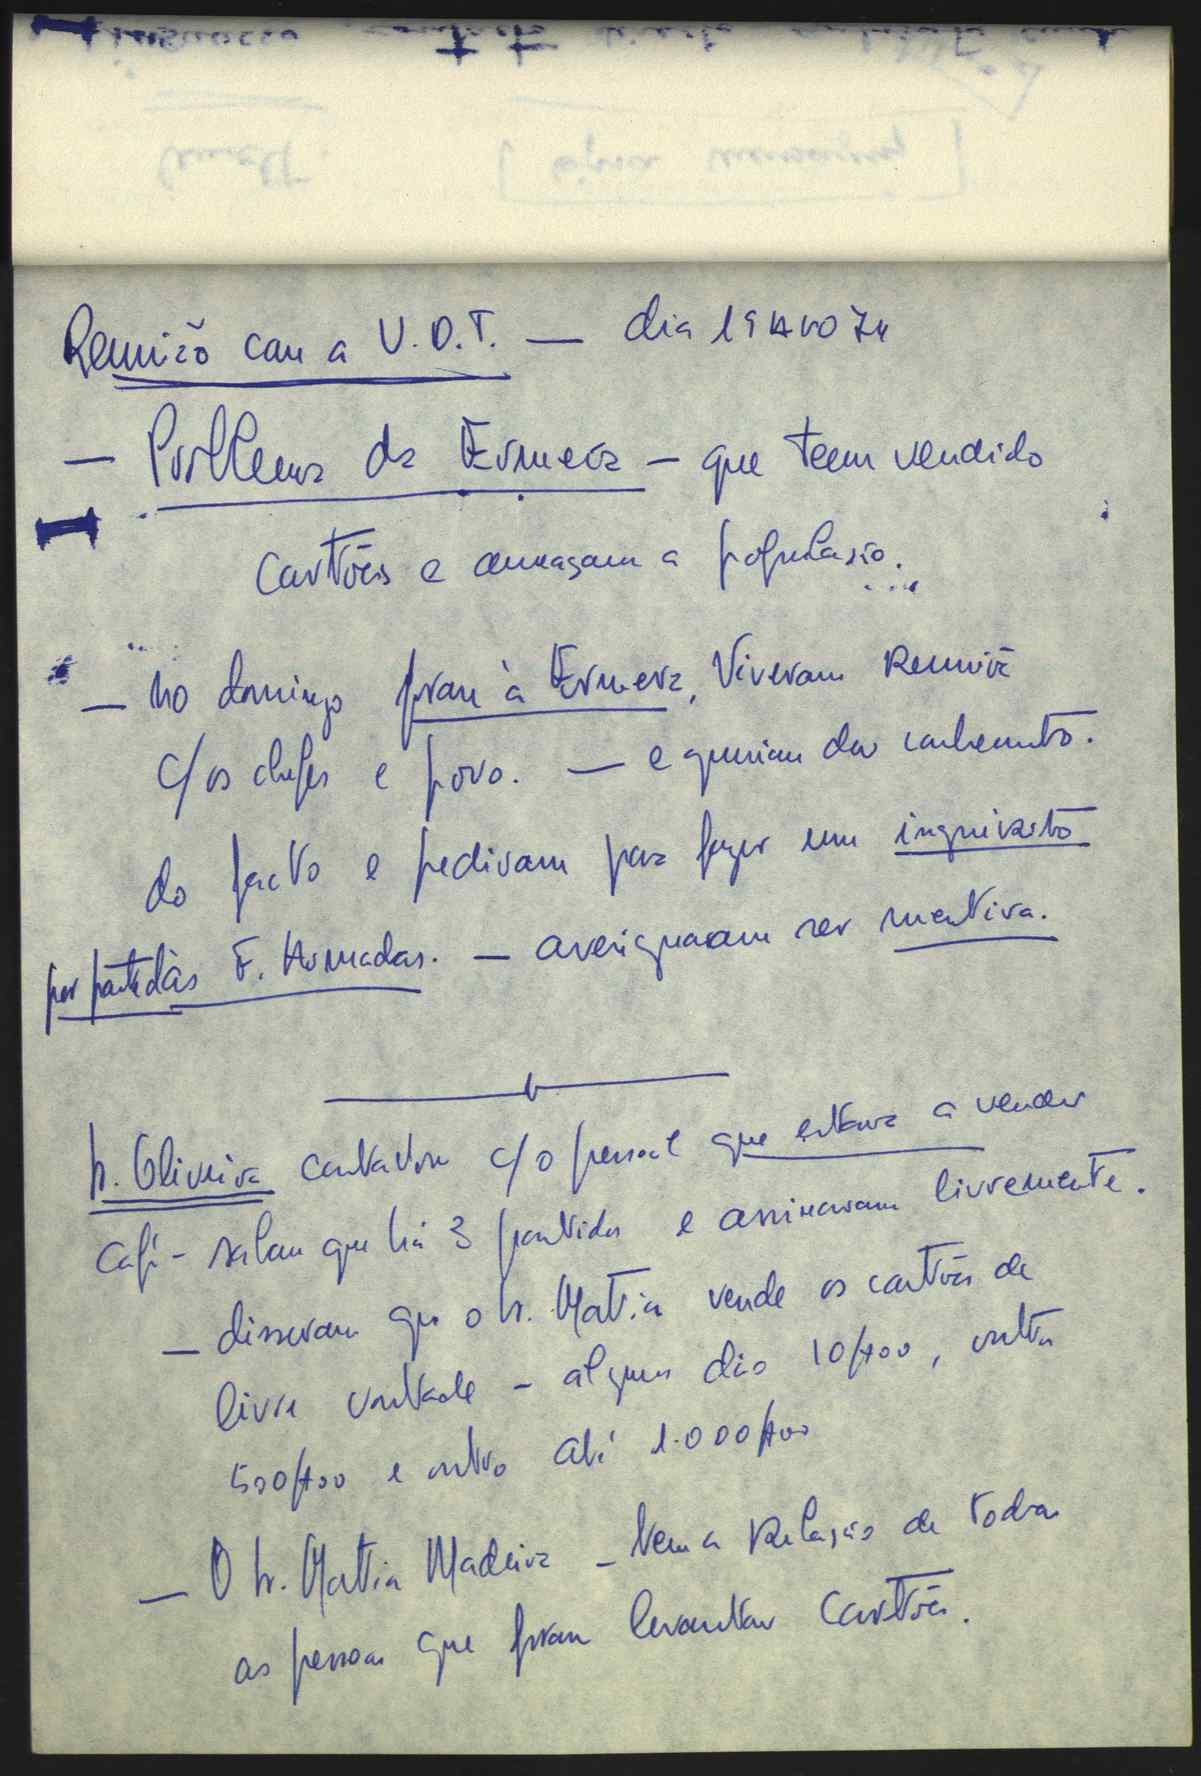 Reunião com a U.D.T. — dia 19 Nov 74
— Problema da Ermera — que teem vendido
cartões e ameaçam a população.
— no domingo foram à Ermera, tiveram reunião
c/ os chefes e povo. — e queriam dar conhecimtº.
do facto e pediram para fazer um inquérito
por parte das F. Armadas. — averiguaram ser mentira.
Sr. Oliveira contactou c/ o pessoal que estava a vender
café - sabem que há 3 partidos e assinaram livremente.
— disseram que o Sr. Matias vende os cartões de
livre vontade - alguns dão 10$00, outros
500$00 e outro até 1.000$00
— O Sr. Matias Madeira - tem a relação de todas
as pessoas que foram levantar cartões.